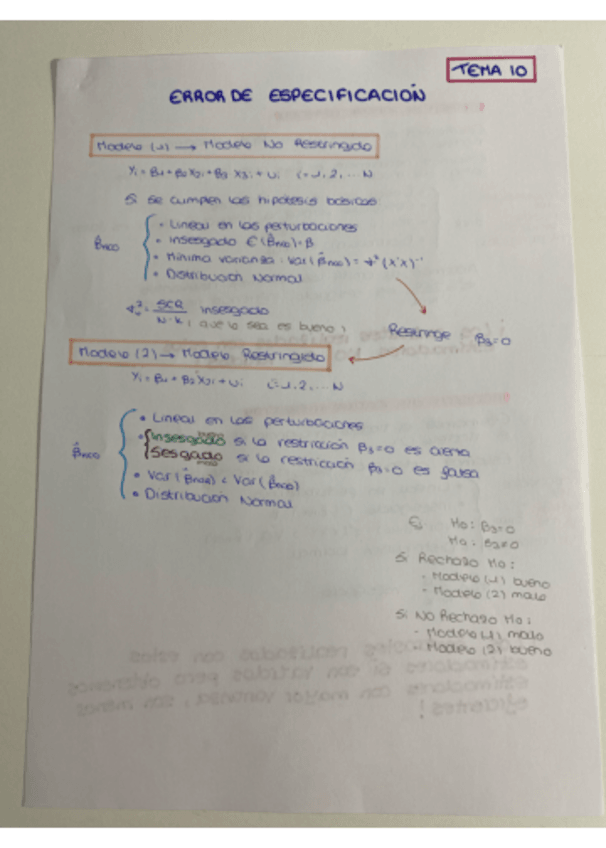 TEMA 10
ERROR DE ESPECIFICACIÓN
Modelo (1) → Modelo No Restringido
Yi = β1 + β2 X2i + β3 X3i + Ui i=1,2,... N
Si se cumplen las hipótesis básicas:
β̂MCO
• Lineal en las perturbaciones
• Insesgado E(β̂MCO)=β
• Mínima varianza: Var(β̂MCO) = σ²(X'X)⁻¹
• Distribución Normal
SCR
N-K
insesgado
, que lo sea es bueno,
Restringe β3=0
Modelo (2) → Modelo Restringido
• Lineal en las perturbaciones
• Insesgado si la restricción β3=0 es cierta
Sesgado si la restricción β3=0 es falsa
• Distribución Normal
Si Rechazo Ho:
- Modelo (1) bueno
- Modelo (2) malo
Si NO Rechazo Ho:
- Modelo (1) malo
- Modelo (2) bueno